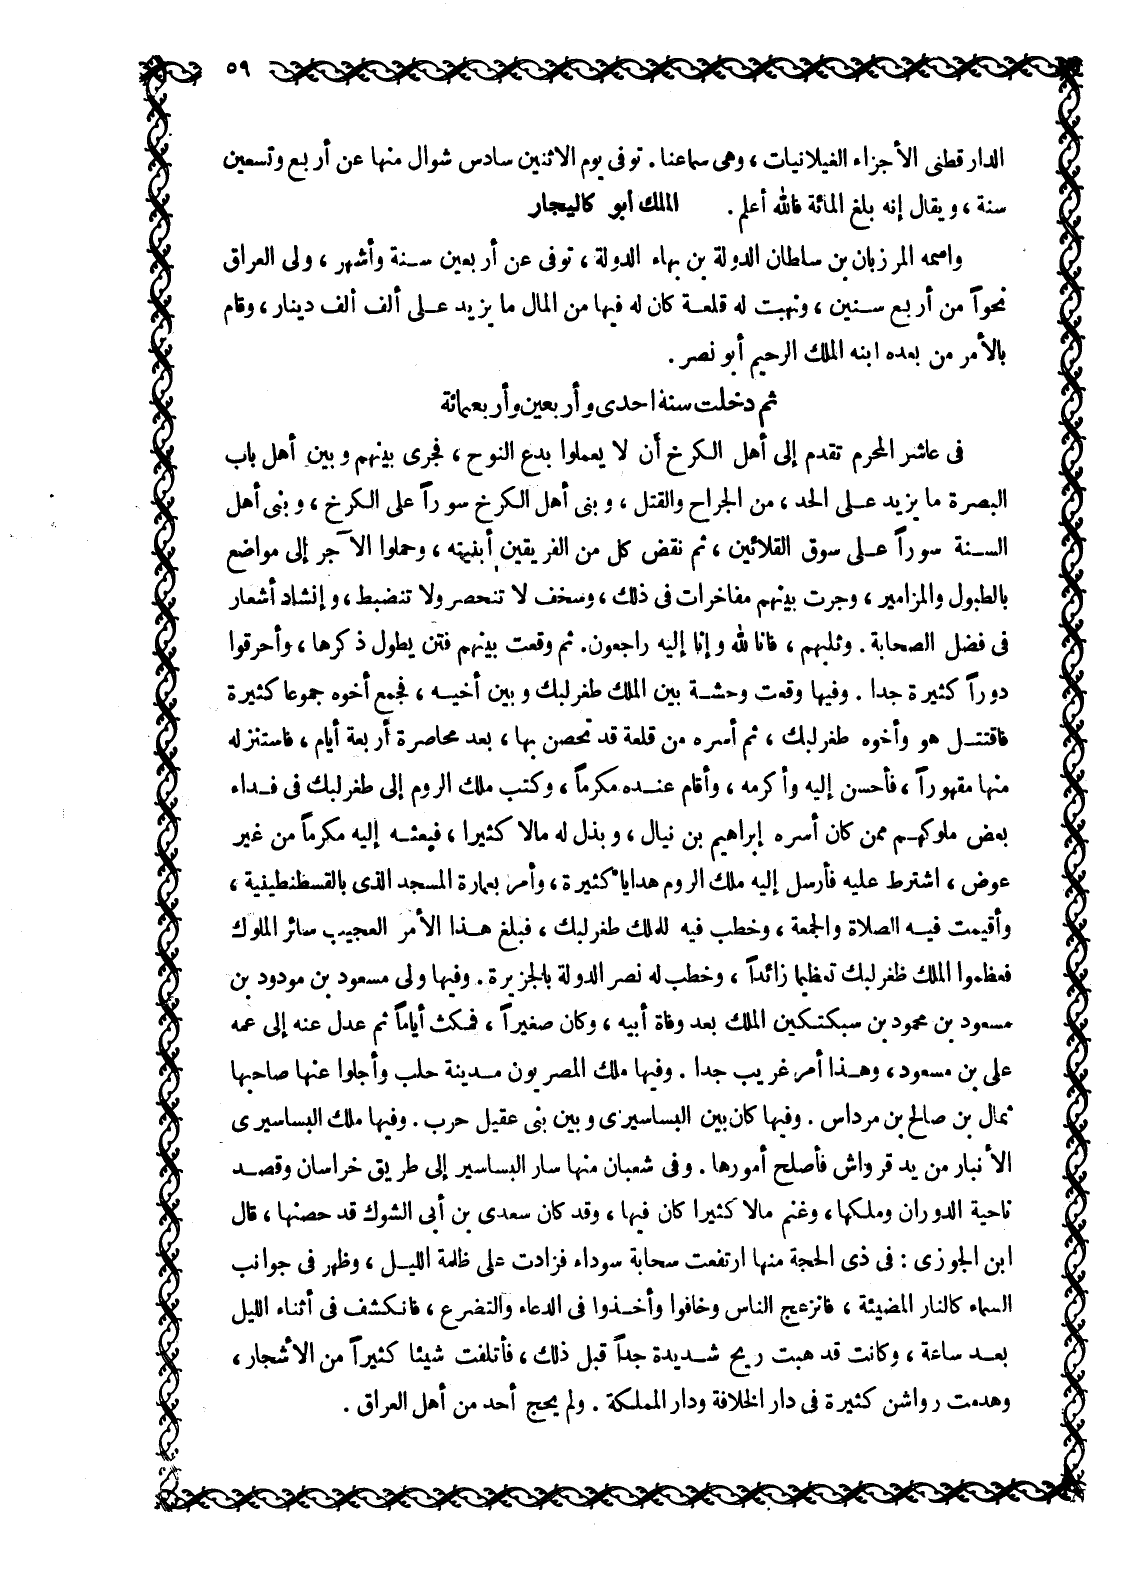 ٥٩
الدارقطنى الأجزاء الغيلانيات ، وهى سماعنا . توفى يوم الاثنين سادس شوال منها عن أربع وتسعين
سنة ، ويقال إنه بلغ المائة فالله أعلم . الملك أبو كاليجار
واسمه المرزبان بن سلطان الدولة بن بهاء الدولة ، توفى عن أربعين سنة وأشهر ، ولى العراق
نحواً من أربع سنين ، ونهبت له قلعة كان له فيها من المال ما يزيد على ألف ألف دينار ، وقام
بالأمر من بعده ابنه الملك الرحيم أبو نصر .
ثم دخلت سنة احدى وأربعين وأربعمائة
فى عاشر المحرم تقدم إلى أهل الكرخ أن لا يعملوا بدع النوح ، فجرى بينهم وبين أهل باب
البصرة ما يزيد على الحد ، من الجراح والقتل ، وبنى أهل الكرخ سوراً على الكرخ ، وبنى أهل
السنة سوراً على سوق القلائين ، ثم نقض كل من الفريقين أبنيته ، وحملوا الآجر إلى مواضع
بالطبول والمزامير ، وجرت بينهم مفاخرات فى ذلك ، وسخف لا تنحصر ولا تنضبط ، وإنشاد أشعار
فى فضل الصحابة . وثلبهم ، فانا لله وإنا إليه راجعون . ثم وقعت بينهم فتن يطول ذكرها ، وأحرقوا
دوراً كثيرة جدا . وفيها وقعت وحشة بين الملك طغرلبك وبين أخيه ، فجمع أخوه جموعا كثيرة
فاقتتل هو وأخوه طغرلبك ، ثم أسره من قلعة قد تحصن بها ، بعد محاصرة أربعة أيام ، فاستنزله
منها مقهوراً ، فأحسن إليه وأكرمه ، وأقام عنده مكرماً ، وكتب ملك الروم إلى طغرلبك فى فداء
بعض ملوكهم ممن كان أسره إبراهيم بن نيال ، وبذل له مالا كثيرا ، فبعثه إليه مكرماً من غير
عوض ، اشترط عليه فأرسل إليه ملك الروم هدايا كثيرة ، وأمر بعمارة المسجد الذى بالقسطنطينية ،
وأقيمت فيه الصلاة والجمعة ، وخطب فيه للملك طغرلبك ، فبلغ هذا الأمر العجيب سائر الملوك
فعظموا الملك طغرلبك تعظيما زائداً ، وخطب له نصر الدولة بالجزيرة . وفيها ولى مسعود بن مودود بن
مسعود بن محمود بن سبكتكين الملك بعد وفاة أبيه ، وكان صغيراً ، فمكث أياماً ثم عدل عنه إلى عمه
على بن مسعود ، وهذا أمر غريب جدا . وفيها ملك المصريون مدينة حلب وأجلوا عنها صاحبها
ثمال بن صالح بن مرداس . وفيها كان بين البساسيرى وبين بنى عقيل حرب . وفيها ملك البساسيرى
الأنبار من يد قرواش فأصلح أمورها . وفى شعبان منها سار البساسير إلى طريق خراسان وقصد
ناحية الدوران وملكها ، وغنم مالا كثيرا كان فيها ، وقد كان سعدى بن أبى الشوك قد حصنها ، قال
ابن الجوزى : فى ذى الحجة منها ارتفعت سحابة سوداء فزادت على ظلمة الليل ، وظهر فى جوانب
السماء كالنار المضيئة ، فانزعج الناس وخافوا وأخذوا فى الدعاء والتضرع ، فانكشف فى أثناء الليل
بعد ساعة ، وكانت قد هبت ريح شديدة جداً قبل ذلك ، فأتلفت شيئا كثيراً من الأشجار ،
وهدمت رواشن كثيرة فى دار الخلافة ودار المملكة . ولم يحج أحد من أهل العراق .